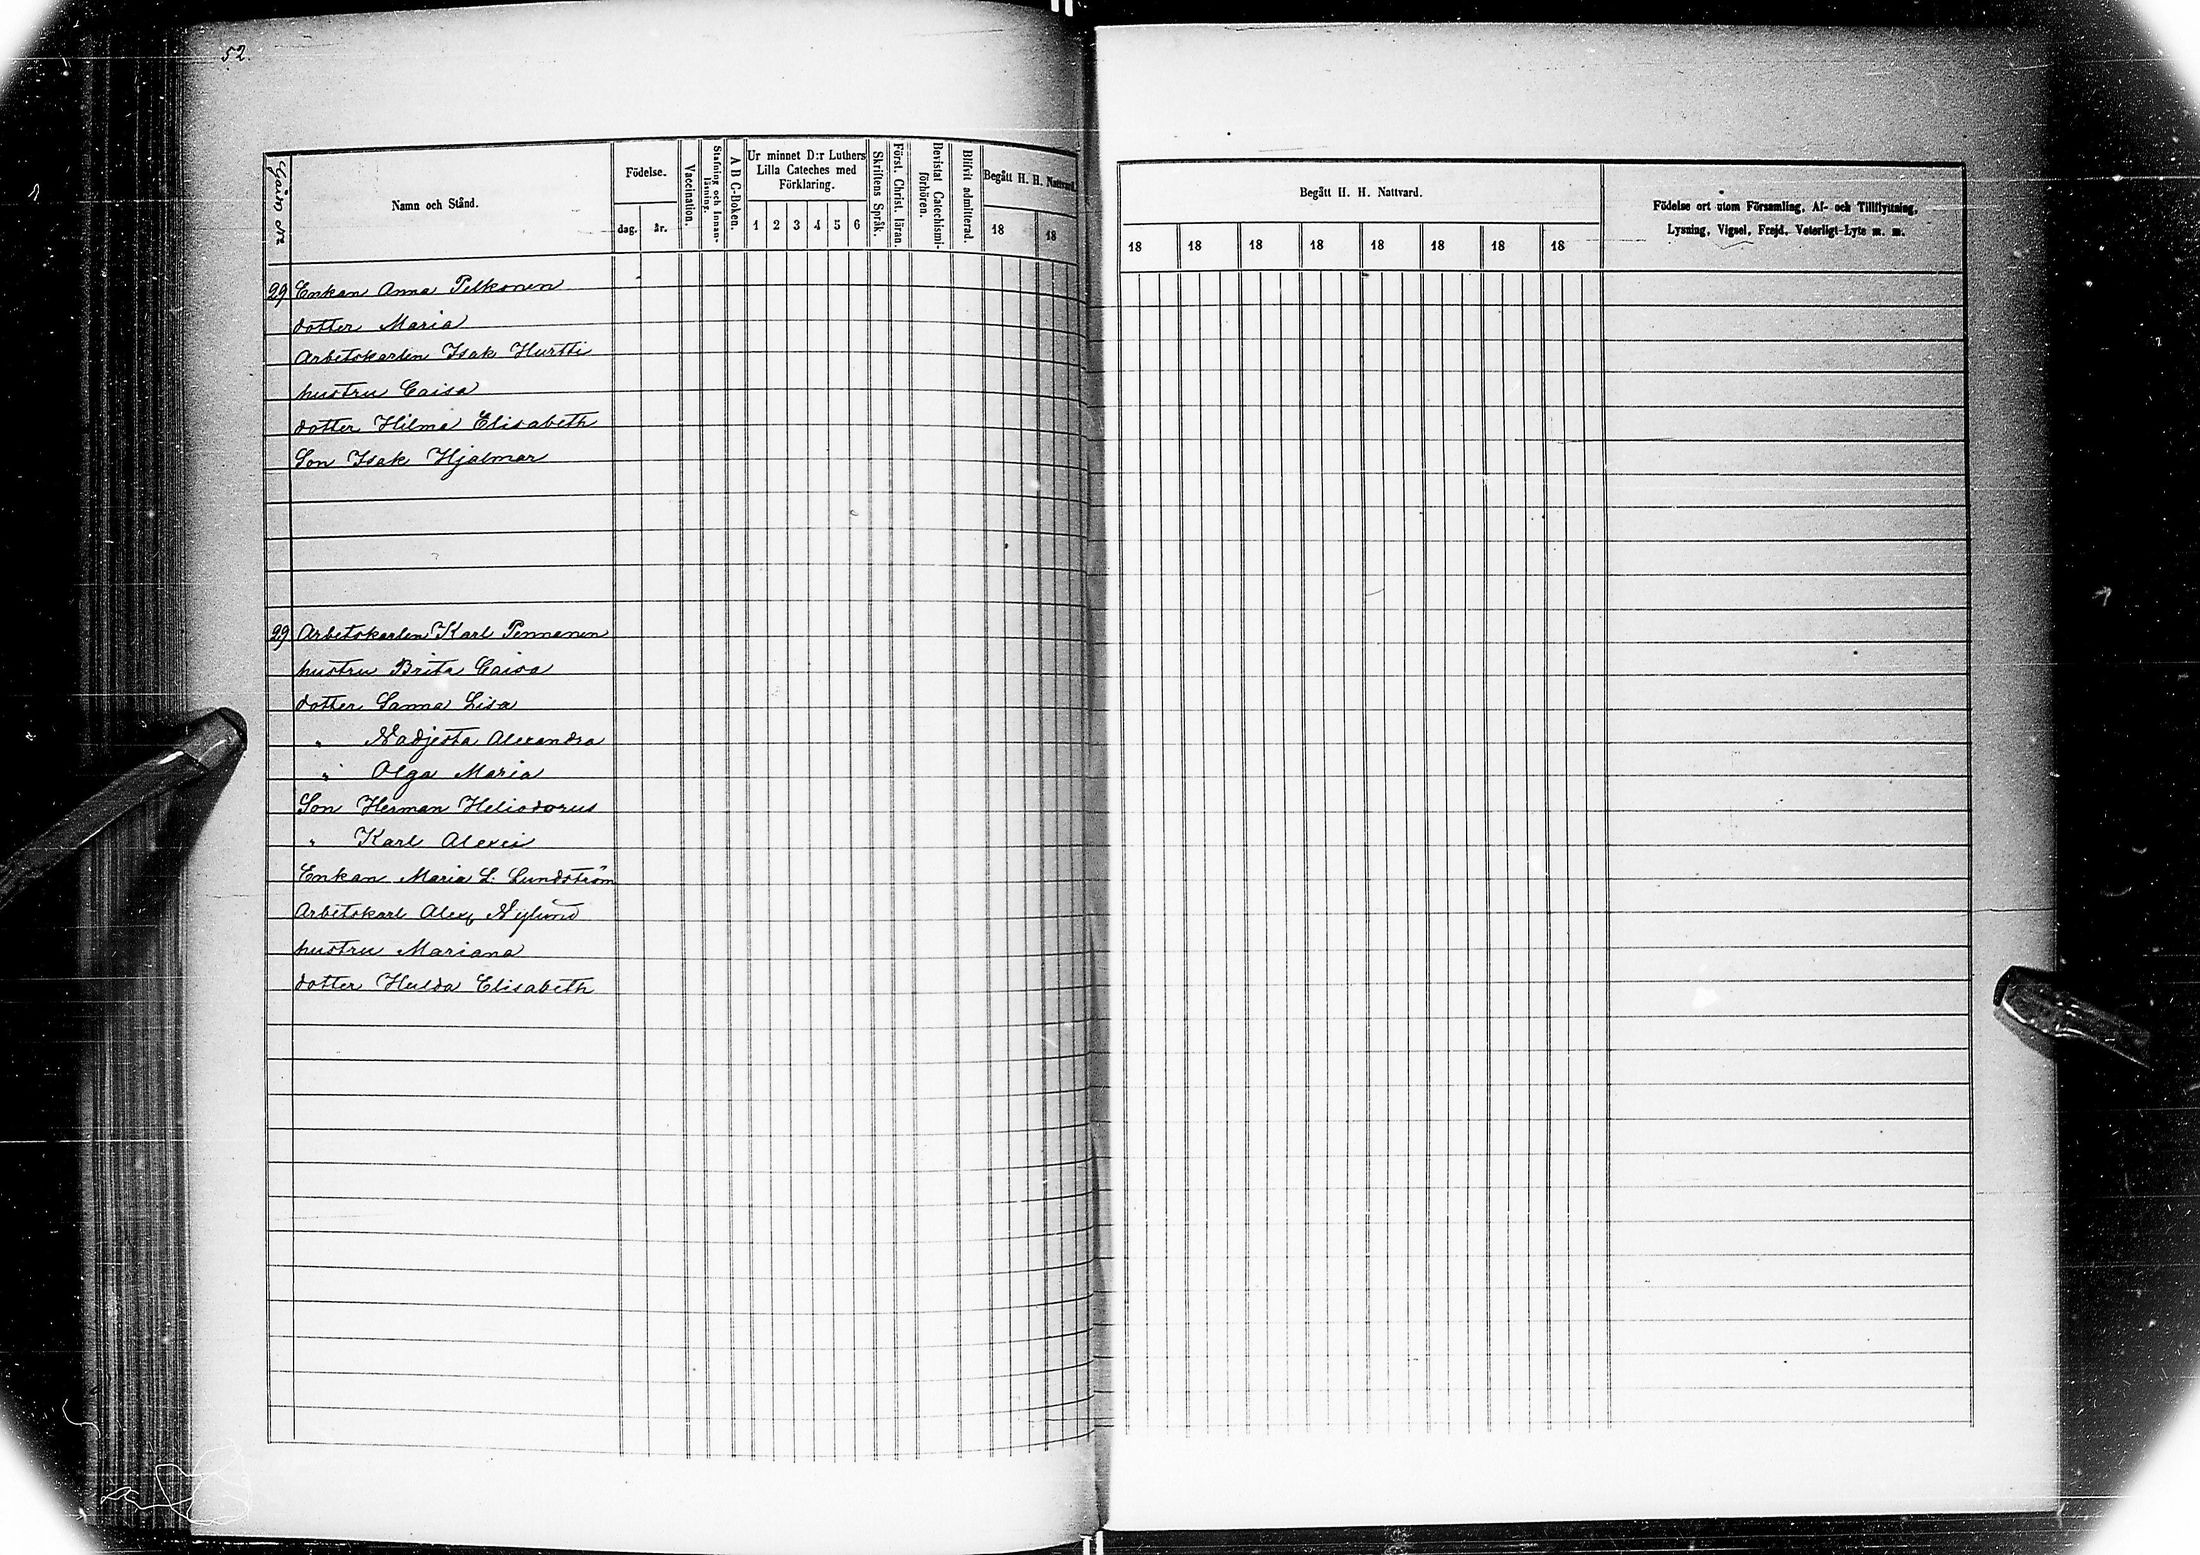 52.
Gård No
Namn och Stånd.
Födelse.
dag.
år.
Vaccination.
Stafning och Innanläsning.
A B C-Boken.
Ur minnet D:r Luthers
Lilla Cateches med
Förklaring.
1 2 3 4 5 6
Skriftens Språk.
Först. Christ. läran.
Bevistat Catechismi-
förhören.
Blifvit admitterad.
Begått H. H. Nattvard.
18 18
29 Enkan Anna Pelkonen
dotter Maria
Arbetskarlen Isak Hurtti
hustru Caisa
dotter Hilma Elisabeth
Son Isak Hjalmar
29 Arbetskarlen Karl Pennanen
hustru Brita Caisa
dotter Sanna Lisa
" Nadjesta Alexandra
" Olga Maria
Son Herman Heliodorus
" Karl Alexei
Enkan Maria L. Lundström
Arbetskarl Alex Nylund
hustru Mariana
dotter Hulda Elisabeth
Begått H. H. Nattvard.
18 18 18 18 18 18 18 18
Födelse ort utom Församling, Af- och Tillflyttning,
Lysning, Vigsel, Frejd, Veterligt-Lyte m. m.